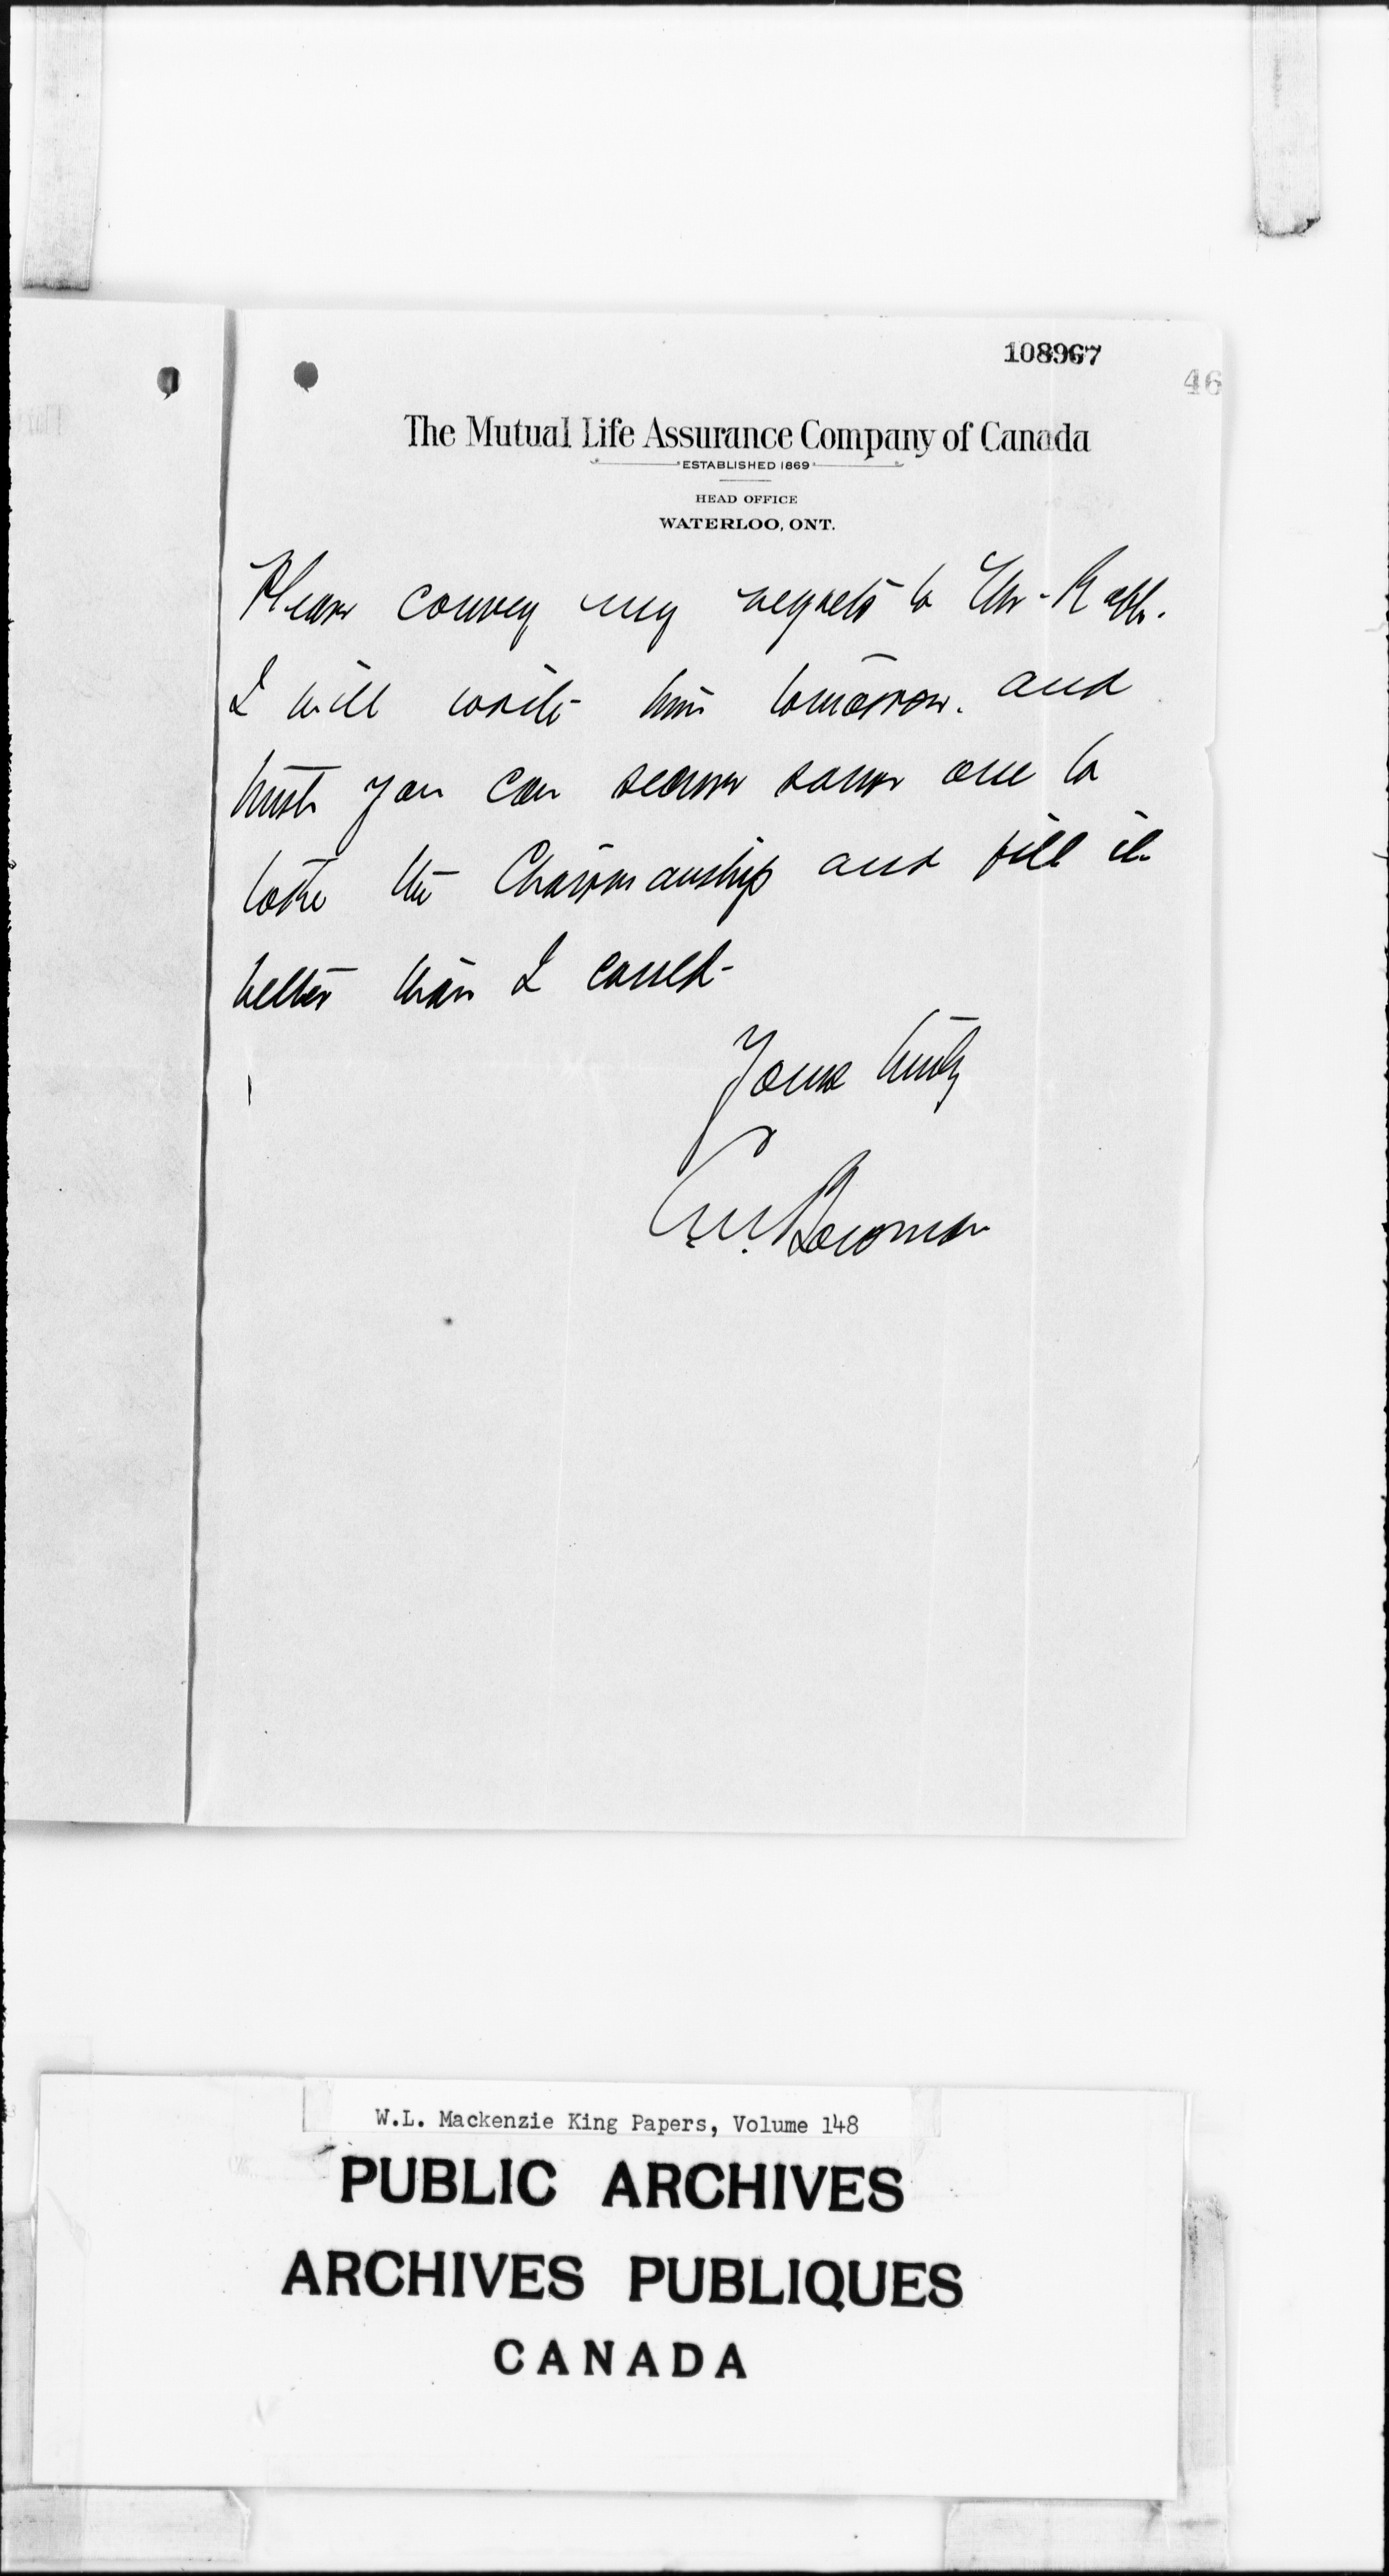 108967
46
The Mutual Life Assurance Company of Canada
ESTABLISHED 1869
HEAD OFFICE
WATERLOO, ONT.
Please convey my regrets to Mr.
I will write him tomorrow. and
trust you can secure some one to
take the Chairmanship and fill it
better than I could-
Yours truly
Bowman
W.L. Mackenzie King Papers, Volume 148
PUBLIC ARCHIVES
ARCHIVES PUBLIQUES
CANADA